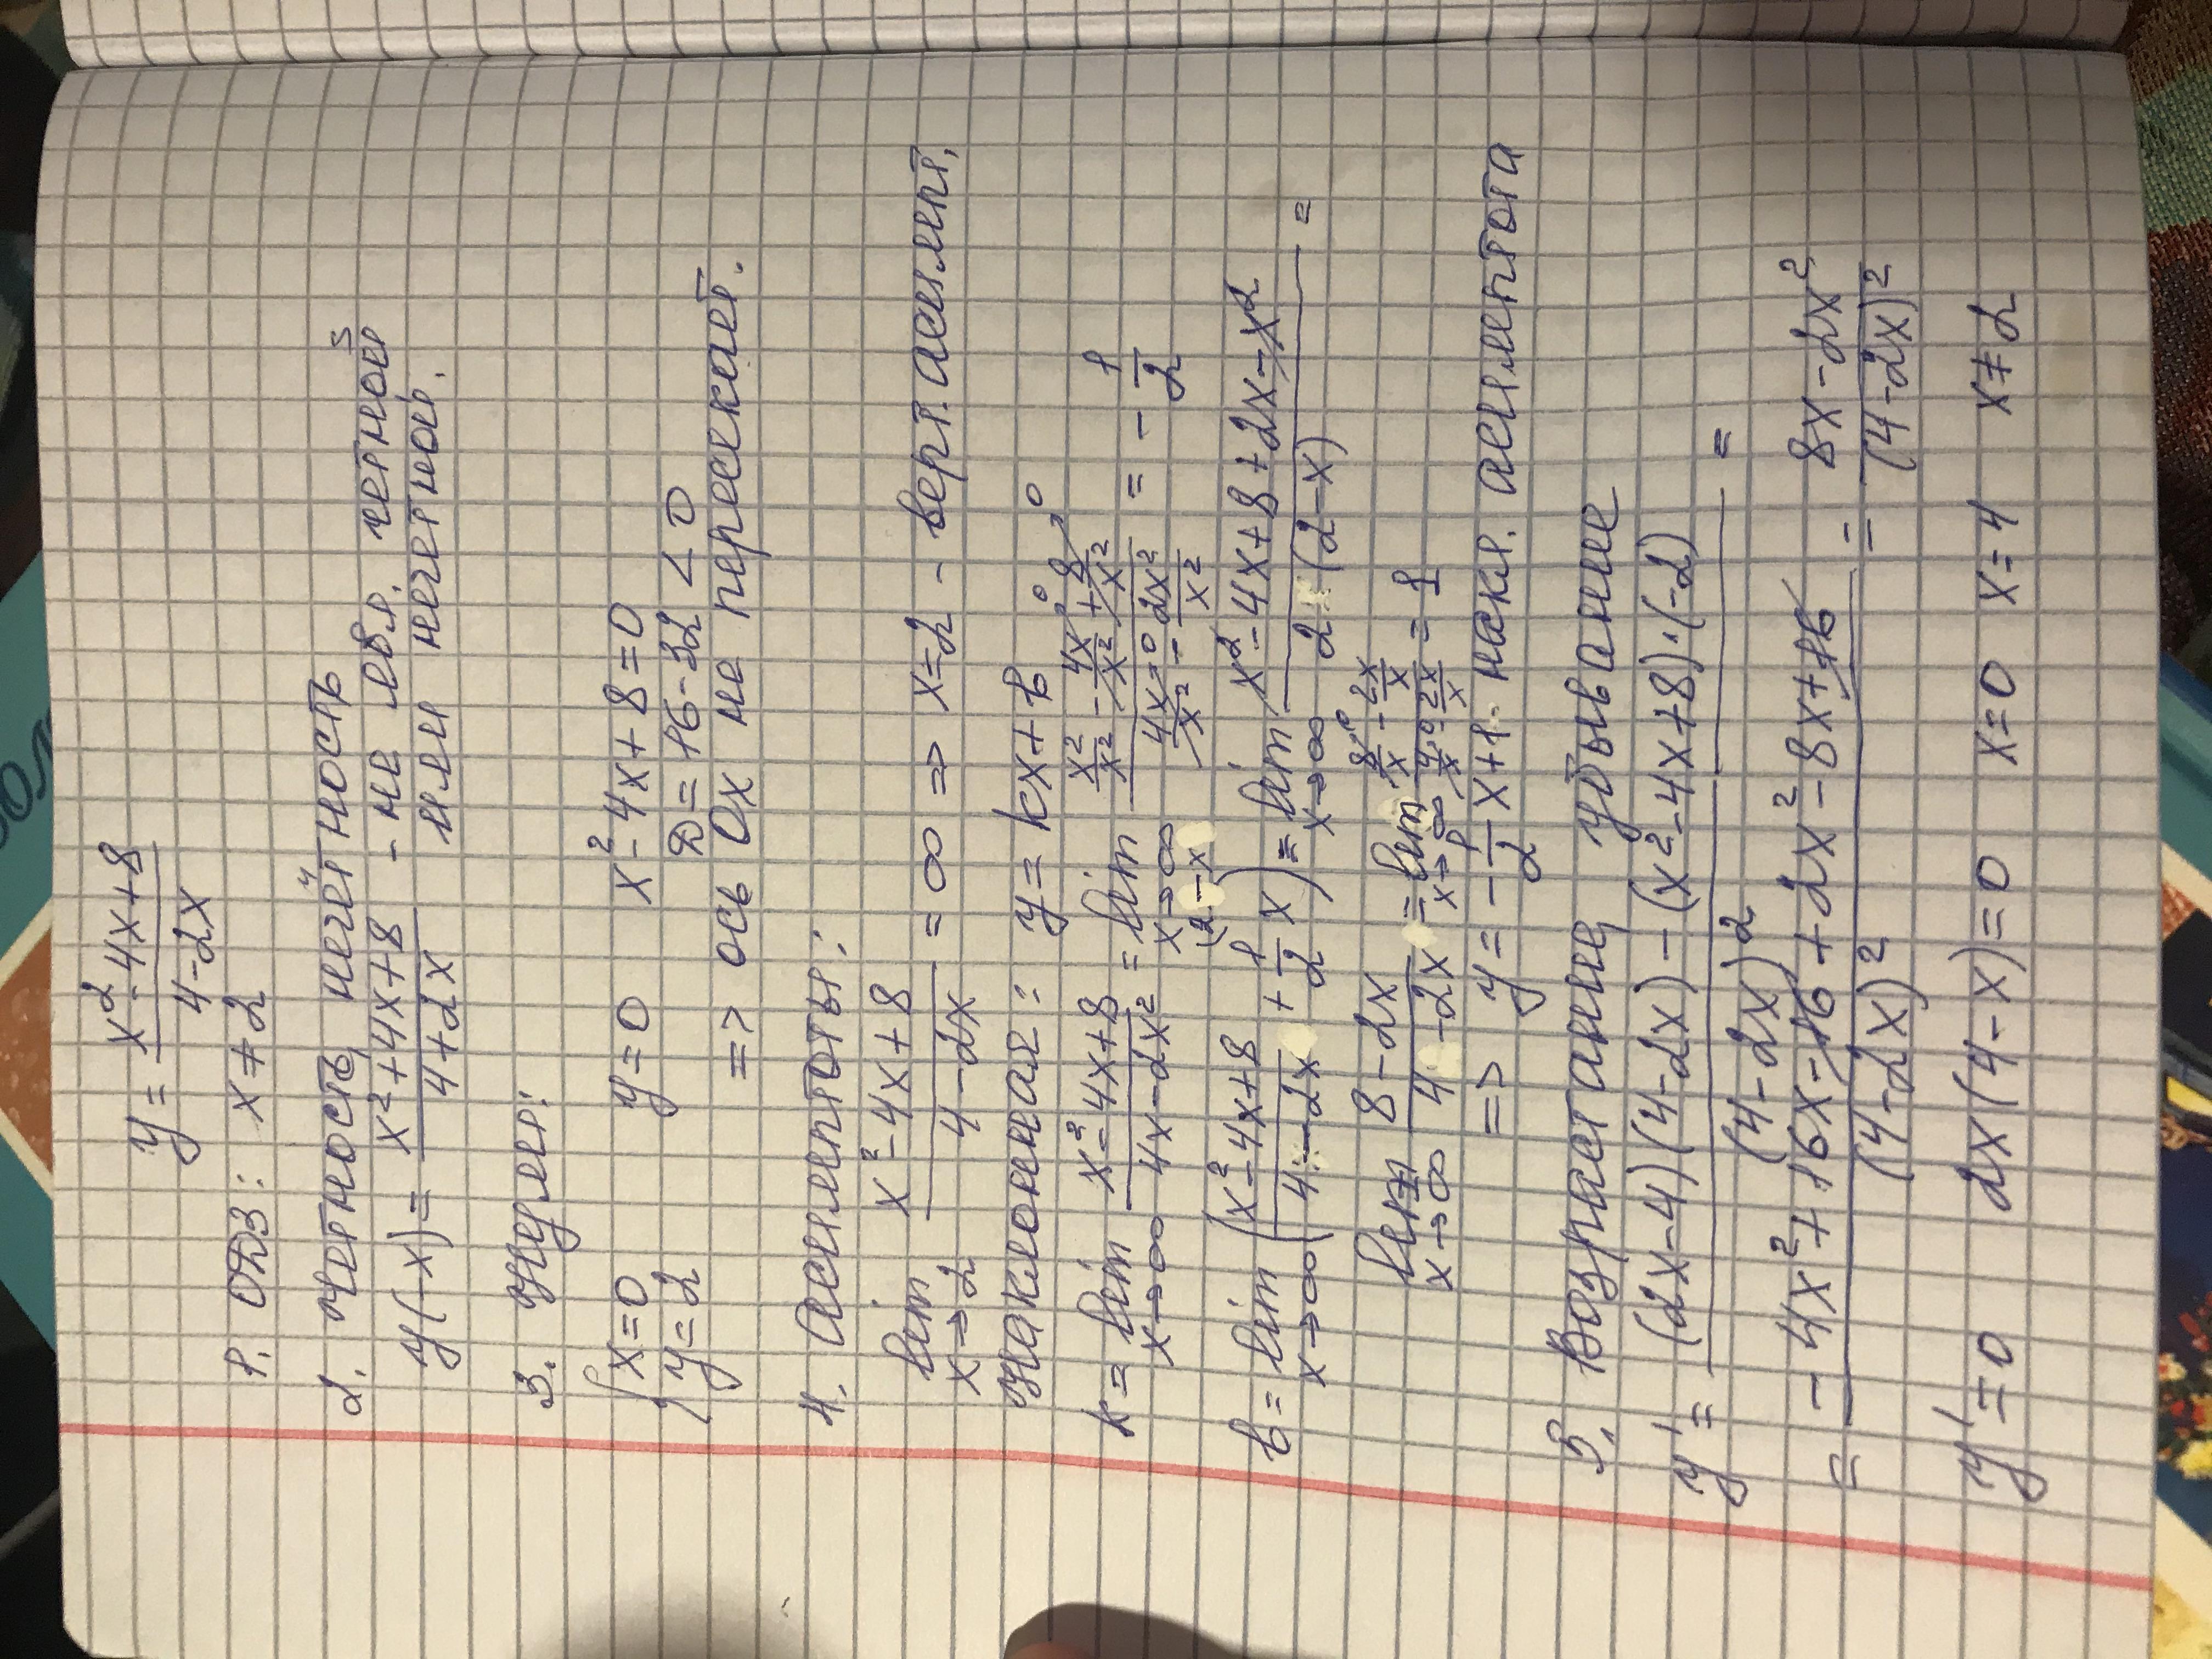 y = (x² - 4x + 8)/(4 - 2x)
1. ОДЗ: x ≠ 2
2. Чётность, нечётность
y(-x) = (x² + 4x + 8)/(4 + 2x) - не явл. четной или нечетной.
3. Нули:
{x = 0 y = 2 y = 0 x² - 4x + 8 = 0
D = 16 - 32 < 0
=> ось Ox не пересекает.
4. Асимптоты:
lim x→2 (x² - 4x + 8)/(4 - 2x) = ∞ => x = 2 - верт. асимпт.
Наклонная: y = kx + b
k = lim x→∞ (x² - 4x + 8)/(4x - 2x²) = lim x→∞ (x²/x² - 4x/x² + 8/x²)/(4x/x² - 2x²/x²) = - 1/2
b = lim x→∞ ((x² - 4x + 8)/(4 - 2x) + 1/2 x) = lim x→∞ (x² - 4x + 8 + 2x - x²)/(2(2 - x)) =
lim x→∞ (8 - 2x)/(4 - 2x) = lim x→∞ (8/x - 2x/x)/(4/x - 2x/x) = 1
=> y = - 1/2 x + 1 накл. асимптота
5. Возрастание, убывание
y' = ((2x - 4)(4 - 2x) - (x² - 4x + 8)·(-2))/(4 - 2x)² =
= (- 4x² + 16x - 16 + 2x² - 8x + 16)/(4 - 2x)² = (8x - 2x²)/(4 - 2x)²
y' = 0 2x(4 - x) = 0 x = 0 x = 4 x ≠ 2